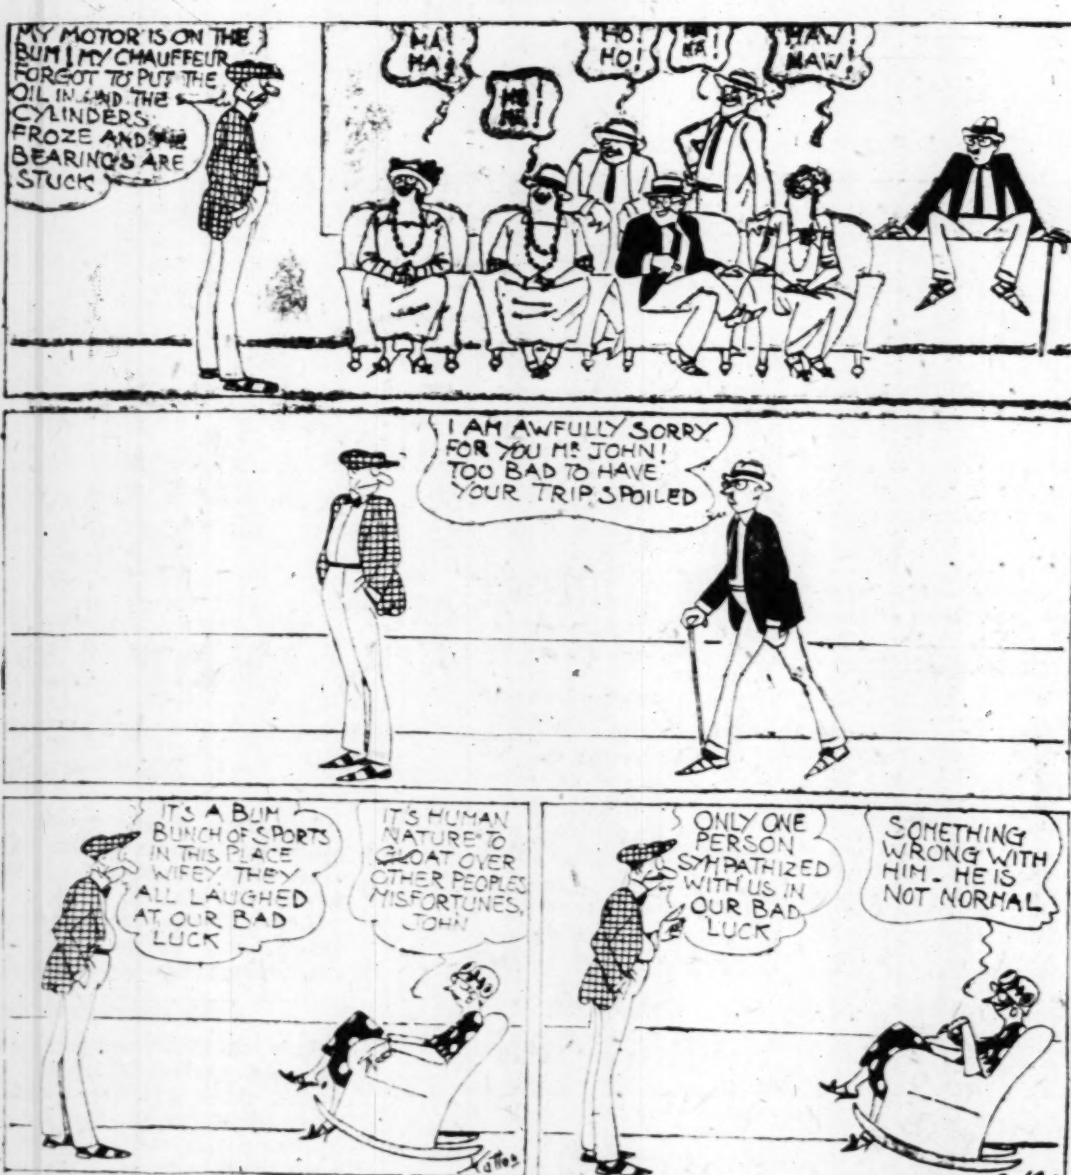 MY MOTOR IS ON THE
BUM! MY CHAUFFEUR
FORGOT TO PUT THE
OIL IN AND THE
CYLINDERS
FROZE AND THE
BEARINGS ARE
STUCK
HA!
HA!
HO!
HO!
HA!
HAW!
HAW!
I AM AWFULLY SORRY
FOR YOU MR JOHN!
TOO BAD TO HAVE
YOUR TRIP SPOILED
IT'S A BUM
BUNCH OF SPORTS
IN THIS PLACE
WIFEY THEY
ALL LAUGHED
AT OUR BAD
LUCK
IT'S HUMAN
NATURE TO
GLOAT OVER
OTHER PEOPLES
MISFORTUNES,
JOHN
ONLY ONE
PERSON
SYMPATHIZED
WITH US IN
OUR BAD
LUCK
SOMETHING
WRONG WITH
HIM - HE IS
NOT NORMAL